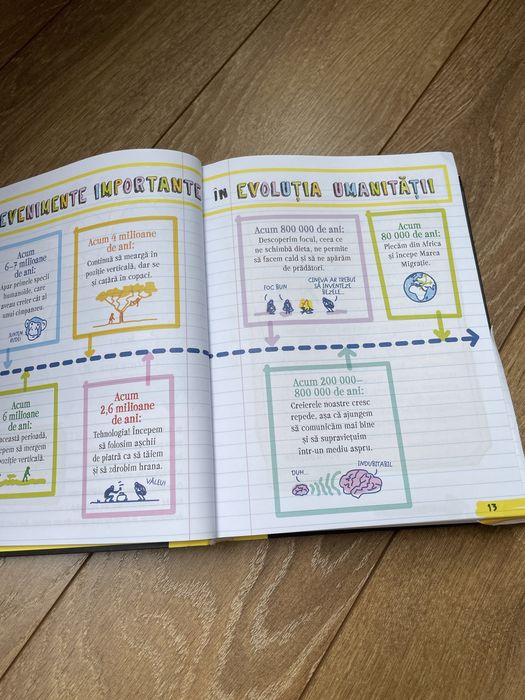 EVENIMENTE IMPORTANTE ÎN EVOLUȚIA UMANITĂȚII
Acum
6–7 milioane
de ani:
Apar primele specii
humanoide, care
aveau creier cât al
unui cimpanzeu.
SUNTEM
RUDE!
Acum 4 milioane
de ani:
Continuă să meargă în
poziție verticală, dar se
și cațără în copaci.
Acum
6 milioane
de ani:
această perioadă,
să mergem
poziție verticală.
Acum
2,6 milioane
de ani:
Tehnologia! Începem
să folosim așchii
de piatră ca să tăiem
și să zdrobim hrana.
VALEU!
Acum 800 000 de ani:
Descoperim focul, ceea ce
ne schimbă dieta, ne permite
să facem cald și să ne apărăm
de prădători.
FOC BUN
CINEVA AR TREBUI
SĂ INVENTEZE
BEZELE...
Acum
80 000 de ani:
Plecăm din Africa
și începe Marea
Migrație.
Acum 200 000–
800 000 de ani:
Creierele noastre cresc
repede, așa că ajungem
să comunicăm mai bine
și să supraviețuim
într-un mediu aspru.
DUH...
INDUBITABIL
13